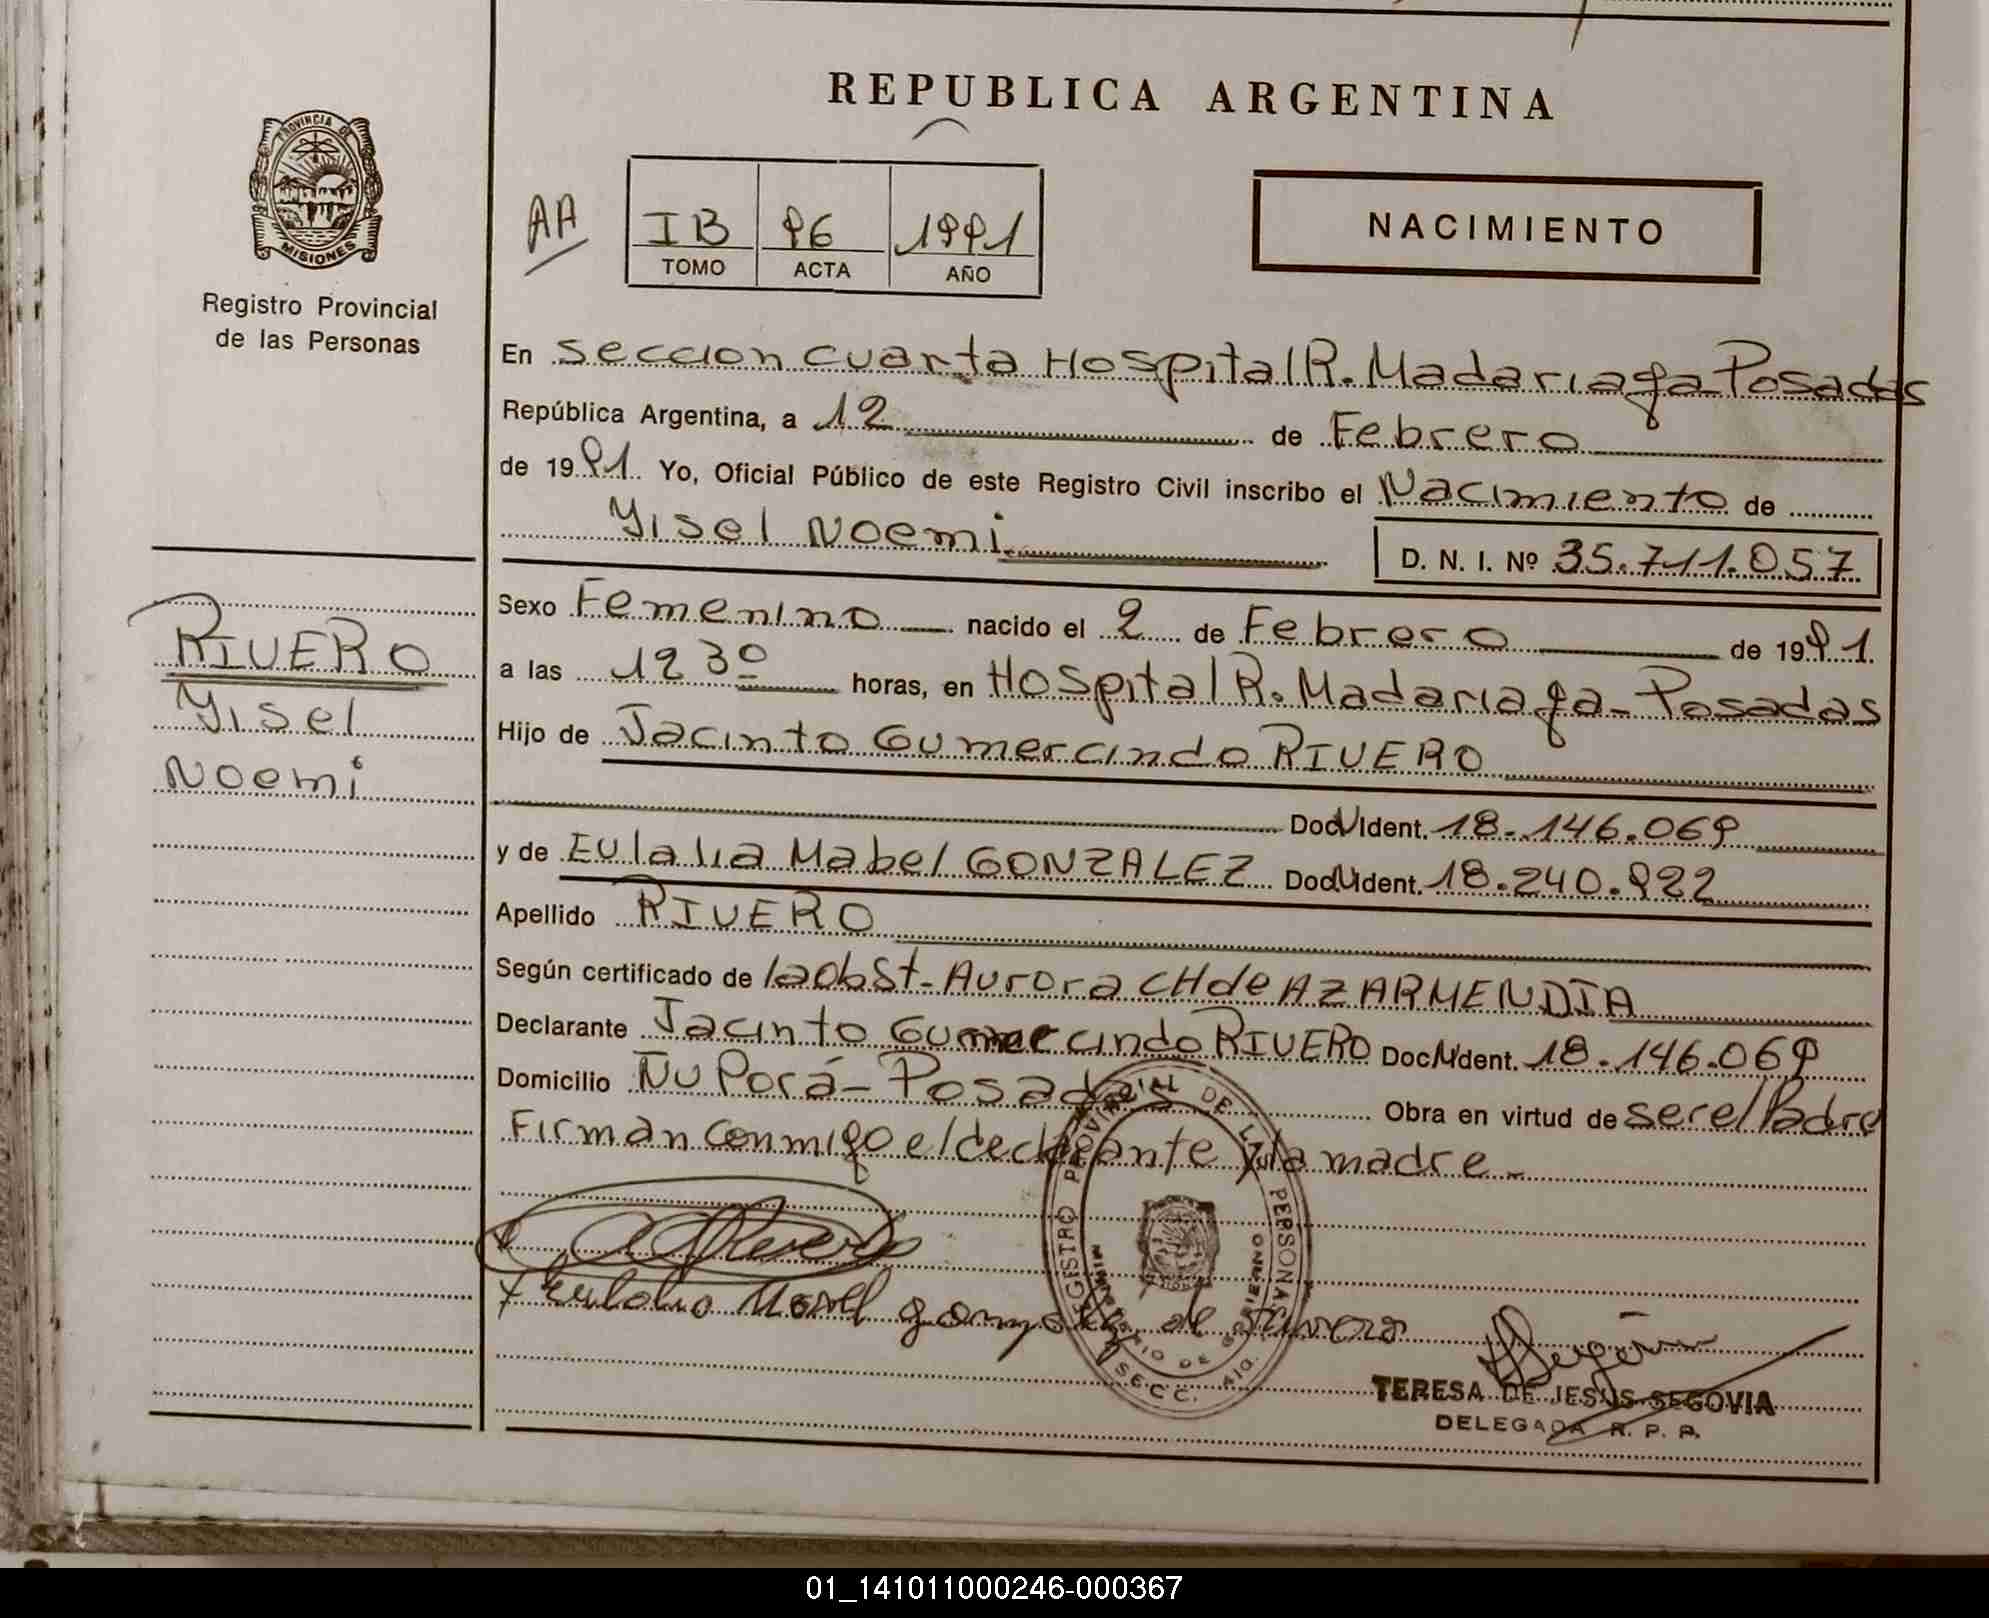 REPUBLICA ARGENTINA
PROVINCIA DE
MISIONES
Registro Provincial
de las Personas
AA
IB 96 1991
TOMO ACTA AÑO
NACIMIENTO
En seccion cuarta Hospital R. Madariaga Posadas
República Argentina, a 12 de Febrero
de 1991 Yo, Oficial Público de este Registro Civil inscribo el Nacimiento de
Yisel Noemi
D. N. I. Nº 35.711.057
RIVERO
Yisel
Noemi
Sexo Femenino nacido el 2 de Febrero de 1991
a las 12 30 horas, en Hospital R. Madariaga - Posadas
Hijo de Jacinto Gumercindo RIVERO
Doc Ident. 18.146.069
y de Eulalia Mabel GONZALEZ Doc Ident. 18.240.922
Apellido RIVERO
Según certificado de la obst- Aurora CH de AZARMENDIA
Declarante Jacinto Gumercindo RIVERO Doc Ident. 18.146.069
Domicilio Ñu Porá - Posadas Obra en virtud de ser el Padre
Firman conmigo el declarante y la madre -
REGISTRO PROVINCIAL DE LAS PERSONAS
MINISTERIO DE GOBIERNO
SECC. 4ta.
Rivero
Eulalia Mabel gonzalez de Rivero
TSegovia
TERESA DE JESUS SEGOVIA
DELEGADA R. P. P.
01_141011000246-000367